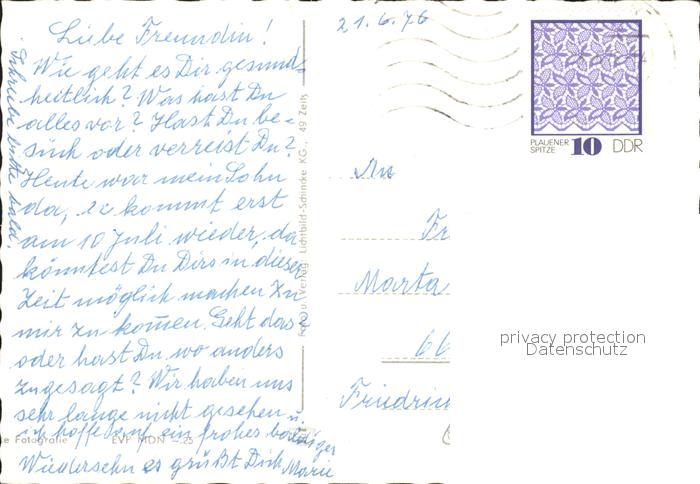 Liebe Freundin!
Wie geht es Dir gesund-
heitlich? Was hast Du
alles vor? Hast Du be-
such oder verreist Du?
Heute war mein Sohn
da, er kommt erst
am 10 Juli wieder, da
könntest Du Dirs in dieser
Zeit möglich machen zu
mir zu kom̄en. Geht das
oder hast Du wo anders
zugesagt? Wir haben uns
sehr lange nicht gesehen u.
ich hoffe auf ein frohes baldiges
Wiedersehn es grüßt Dich Marie
Schreibe bitte bald.
e Fotografie EVP MDN -.25
Foto u. Verlag: Lichtbild-Schincke KG., 49 Zeitz
21.6.76
PLAUENER
SPITZE 10 DDR
An
Fr
Marta
66
Friedrin
privacy protection
Datenschutz